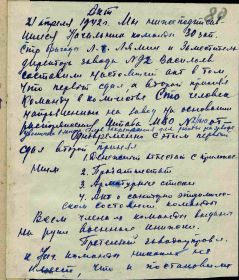 Акт
21 апреля 1942 г. Мы нижеподписав
шиеся Начальник команды 30 зап.
Стр бригады Л. Г. Лямин и Заместитель
директора завода №92 Васильев
составили настоящий акт в том
что первый сдал а второй принял
Команду в количестве Сто человек
направленные на завод на основании
распоряжения Штаба МВО
Одновременно с этим первый
сдал второй принял
1. Денежный аттестат
2. Продаттестат
3. Арматурные списки
4. Акт о санитарно
состоянии команды
Всем членам команды выданы
на руки военные книжки.
Претензий
к Нач. команды никаких не
имеет, что и постановили